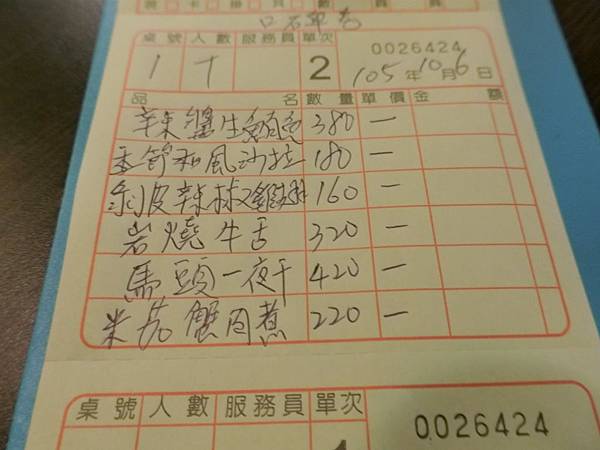 口石單卷
桌號 人數 服務員 單次 0026424
1 十 2 105年10月6日
品名 數量 單價 金額
辣醬生鮑魚 380 一
季節和風沙拉 180 一
剝皮辣椒雞湯 160 一
岩燒牛舌 320 一
馬頭一夜干 420 一
米茄蟹肉煮 220 一
桌號 人數 服務員 單次 0026424